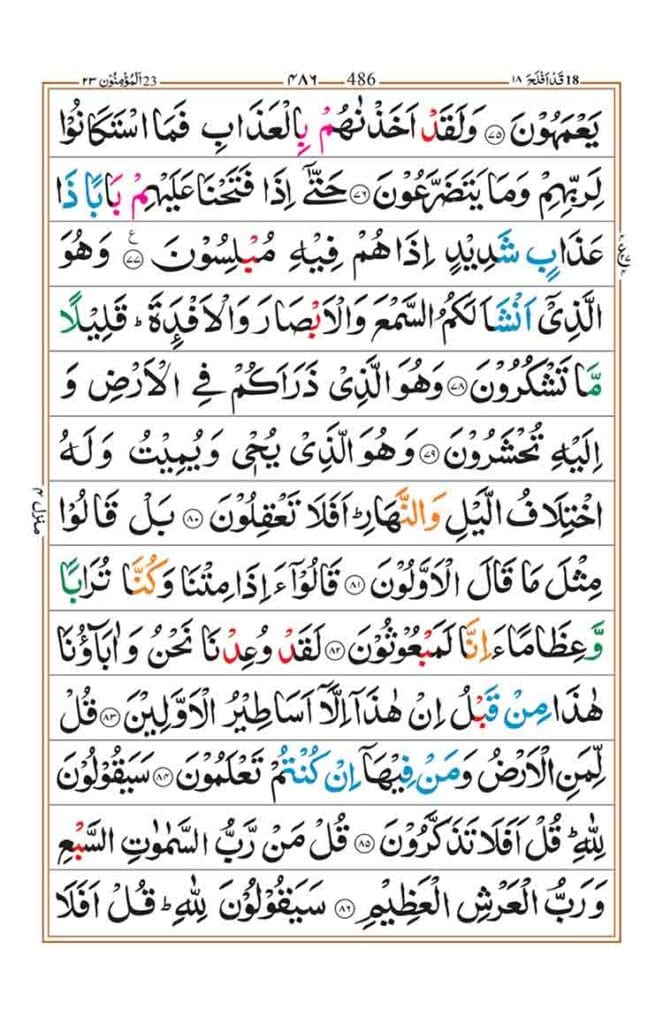 18 قَدْ اَفْلَحَ ١٨ 486 ٤٨٦ 23 اَلْمُؤْمِنُوْن ٢٣
يَعْمَهُوْنَ ﴿٧٥﴾ وَلَقَدْ اَخَذْنٰهُمْ بِالْعَذَابِ فَمَا اسْتَكَانُوْا
لِرَبِّهِمْ وَمَا يَتَضَرَّعُوْنَ ﴿٧٦﴾ حَتّٰۤى اِذَا فَتَحْنَا عَلَيْهِمْ بَابًا ذَا
عَذَابٍ شَدِيْدٍ اِذَا هُمْ فِيْهِ مُبْلِسُوْنَ ﴿٧٧﴾ ع وَهُوَ
الَّذِيْۤ اَنْشَاَ لَكُمُ السَّمْعَ وَالْاَبْصَارَ وَالْاَفْـِٕدَةَ ؕ قَلِيْلًا
مَّا تَشْكُرُوْنَ ﴿٧٨﴾ وَهُوَ الَّذِيْ ذَرَاَكُمْ فِي الْاَرْضِ وَ
اِلَيْهِ تُحْشَرُوْنَ ﴿٧٩﴾ وَهُوَ الَّذِيْ يُحْيٖ وَيُمِيْتُ وَلَهُ
اخْتِلَافُ الَّيْلِ وَالنَّهَارِ ؕ اَفَلَا تَعْقِلُوْنَ ﴿٨٠﴾ بَلْ قَالُوْا
مِثْلَ مَا قَالَ الْاَوَّلُوْنَ ﴿٨١﴾ قَالُوْۤا ءَاِذَا مِتْنَا وَكُنَّا تُرَابًا
وَّعِظَامًا ءَاِنَّا لَمَبْعُوْثُوْنَ ﴿٨٢﴾ لَقَدْ وُعِدْنَا نَحْنُ وَاٰبَآؤُنَا
هٰذَا مِنْ قَبْلُ اِنْ هٰذَاۤ اِلَّاۤ اَسَاطِيْرُ الْاَوَّلِيْنَ ﴿٨٣﴾ قُلْ
لِّمَنِ الْاَرْضُ وَمَنْ فِيْهَاۤ اِنْ كُنْتُمْ تَعْلَمُوْنَ ﴿٨٤﴾ سَيَقُوْلُوْنَ
لِلّٰهِ ؕ قُلْ اَفَلَا تَذَكَّرُوْنَ ﴿٨٥﴾ قُلْ مَنْ رَّبُّ السَّمٰوٰتِ السَّبْعِ
وَرَبُّ الْعَرْشِ الْعَظِيْمِ ﴿٨٦﴾ سَيَقُوْلُوْنَ لِلّٰهِ ؕ قُلْ اَفَلَا
منزل ٤